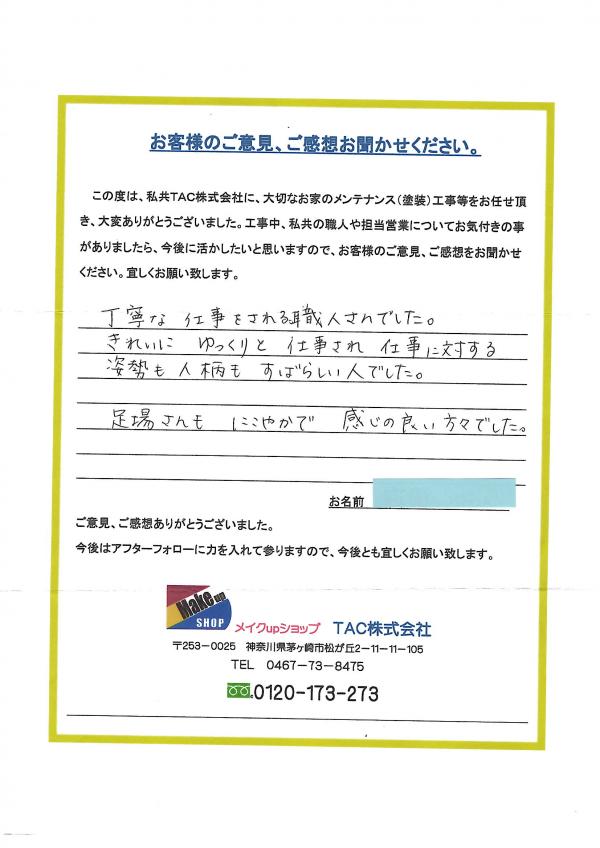 お客様のご意見、ご感想お聞かせください。
この度は、私共TAC株式会社に、大切なお家のメンテナンス（塗装）工事等をお任せ頂
き、大変ありがとうございました。工事中、私共の職人や担当営業についてお気付きの事
がありましたら、今後に活かしたいと思いますので、お客様のご意見、ご感想をお聞かせ
ください。宜しくお願い致します。
丁寧な 仕事をされる職人さんでした。
きれいに ゆっくりと 仕事され 仕事に対する
姿勢も 人柄も すばらしい人でした。
足場さんも にこやかで 感じの良い方々でした。
お名前
ご意見、ご感想ありがとうございました。
今後はアフターフォローに力を入れて参りますので、今後とも宜しくお願い致します。
Make up
SHOP
メイクupショップ TAC株式会社
〒253-0025 神奈川県茅ヶ崎市松が丘2-11-11-105
TEL 0467-73-8475
0120-173-273